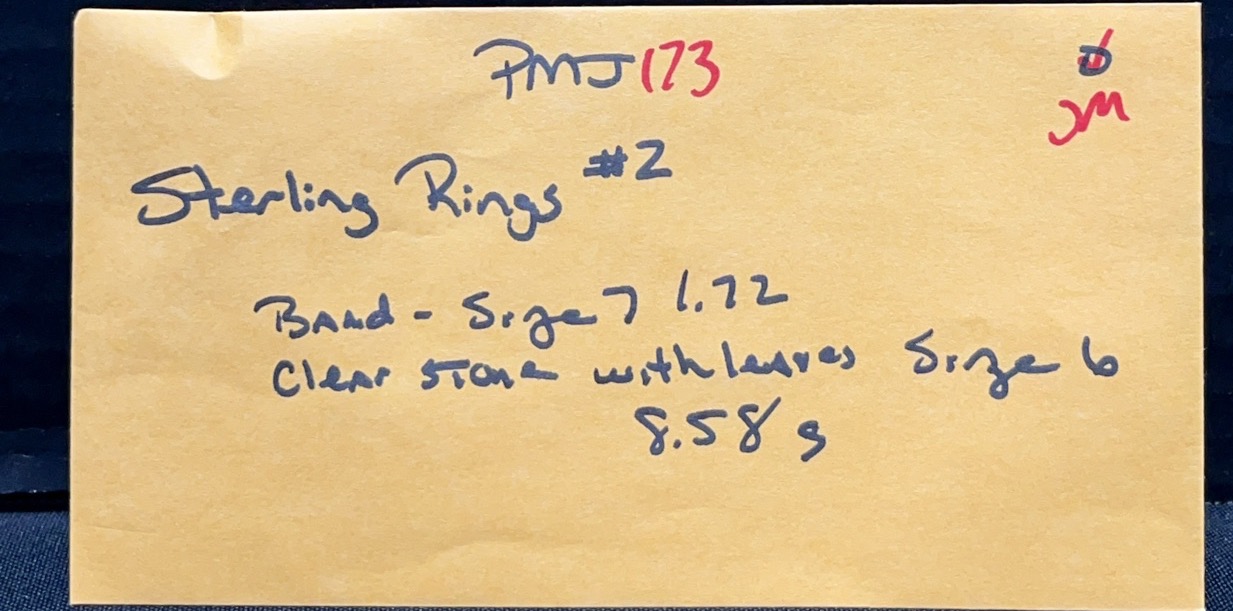 PMJ173
JM
Sterling Rings #2
Band - Size 7 1.72
Clear stone with leaves Size 6
8.58 g